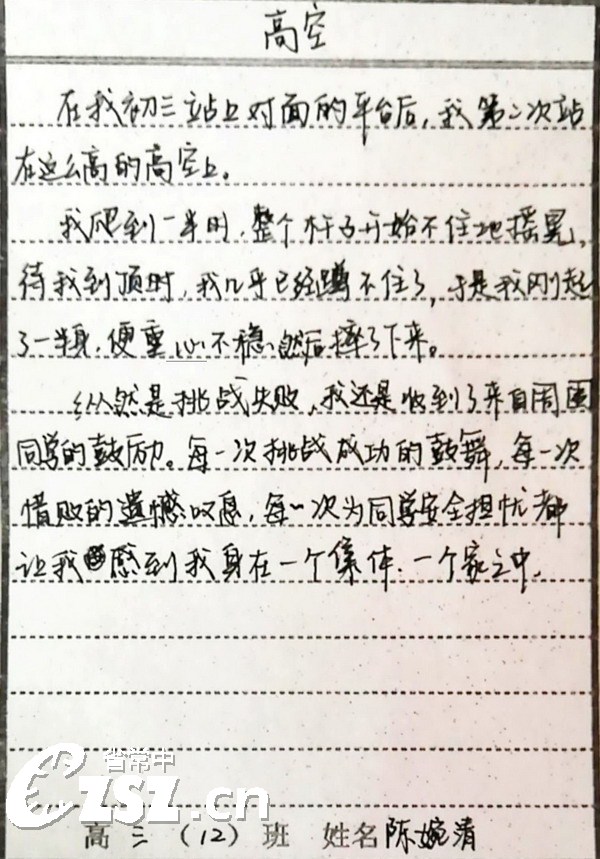 高空
在我初三站上对面的平台后，我第二次站
在这么高的高空上。
我爬到一半时，整个杆子开始不住地摇晃，
待我到顶时，我几乎已经蹲不住了，于是我刚起
了一半身，便重心不稳，然后摔了下来。
纵然是挑战失败，我还是收到了来自周围
同学的鼓励。每一次挑战成功的鼓舞，每一次
惜败的遗憾叹息，每一次为同学安全担忧都
让我感到我身在一个集体、一个家之中。
省常中
CZSZ.cn
高三（12）班 姓名 陈婉清